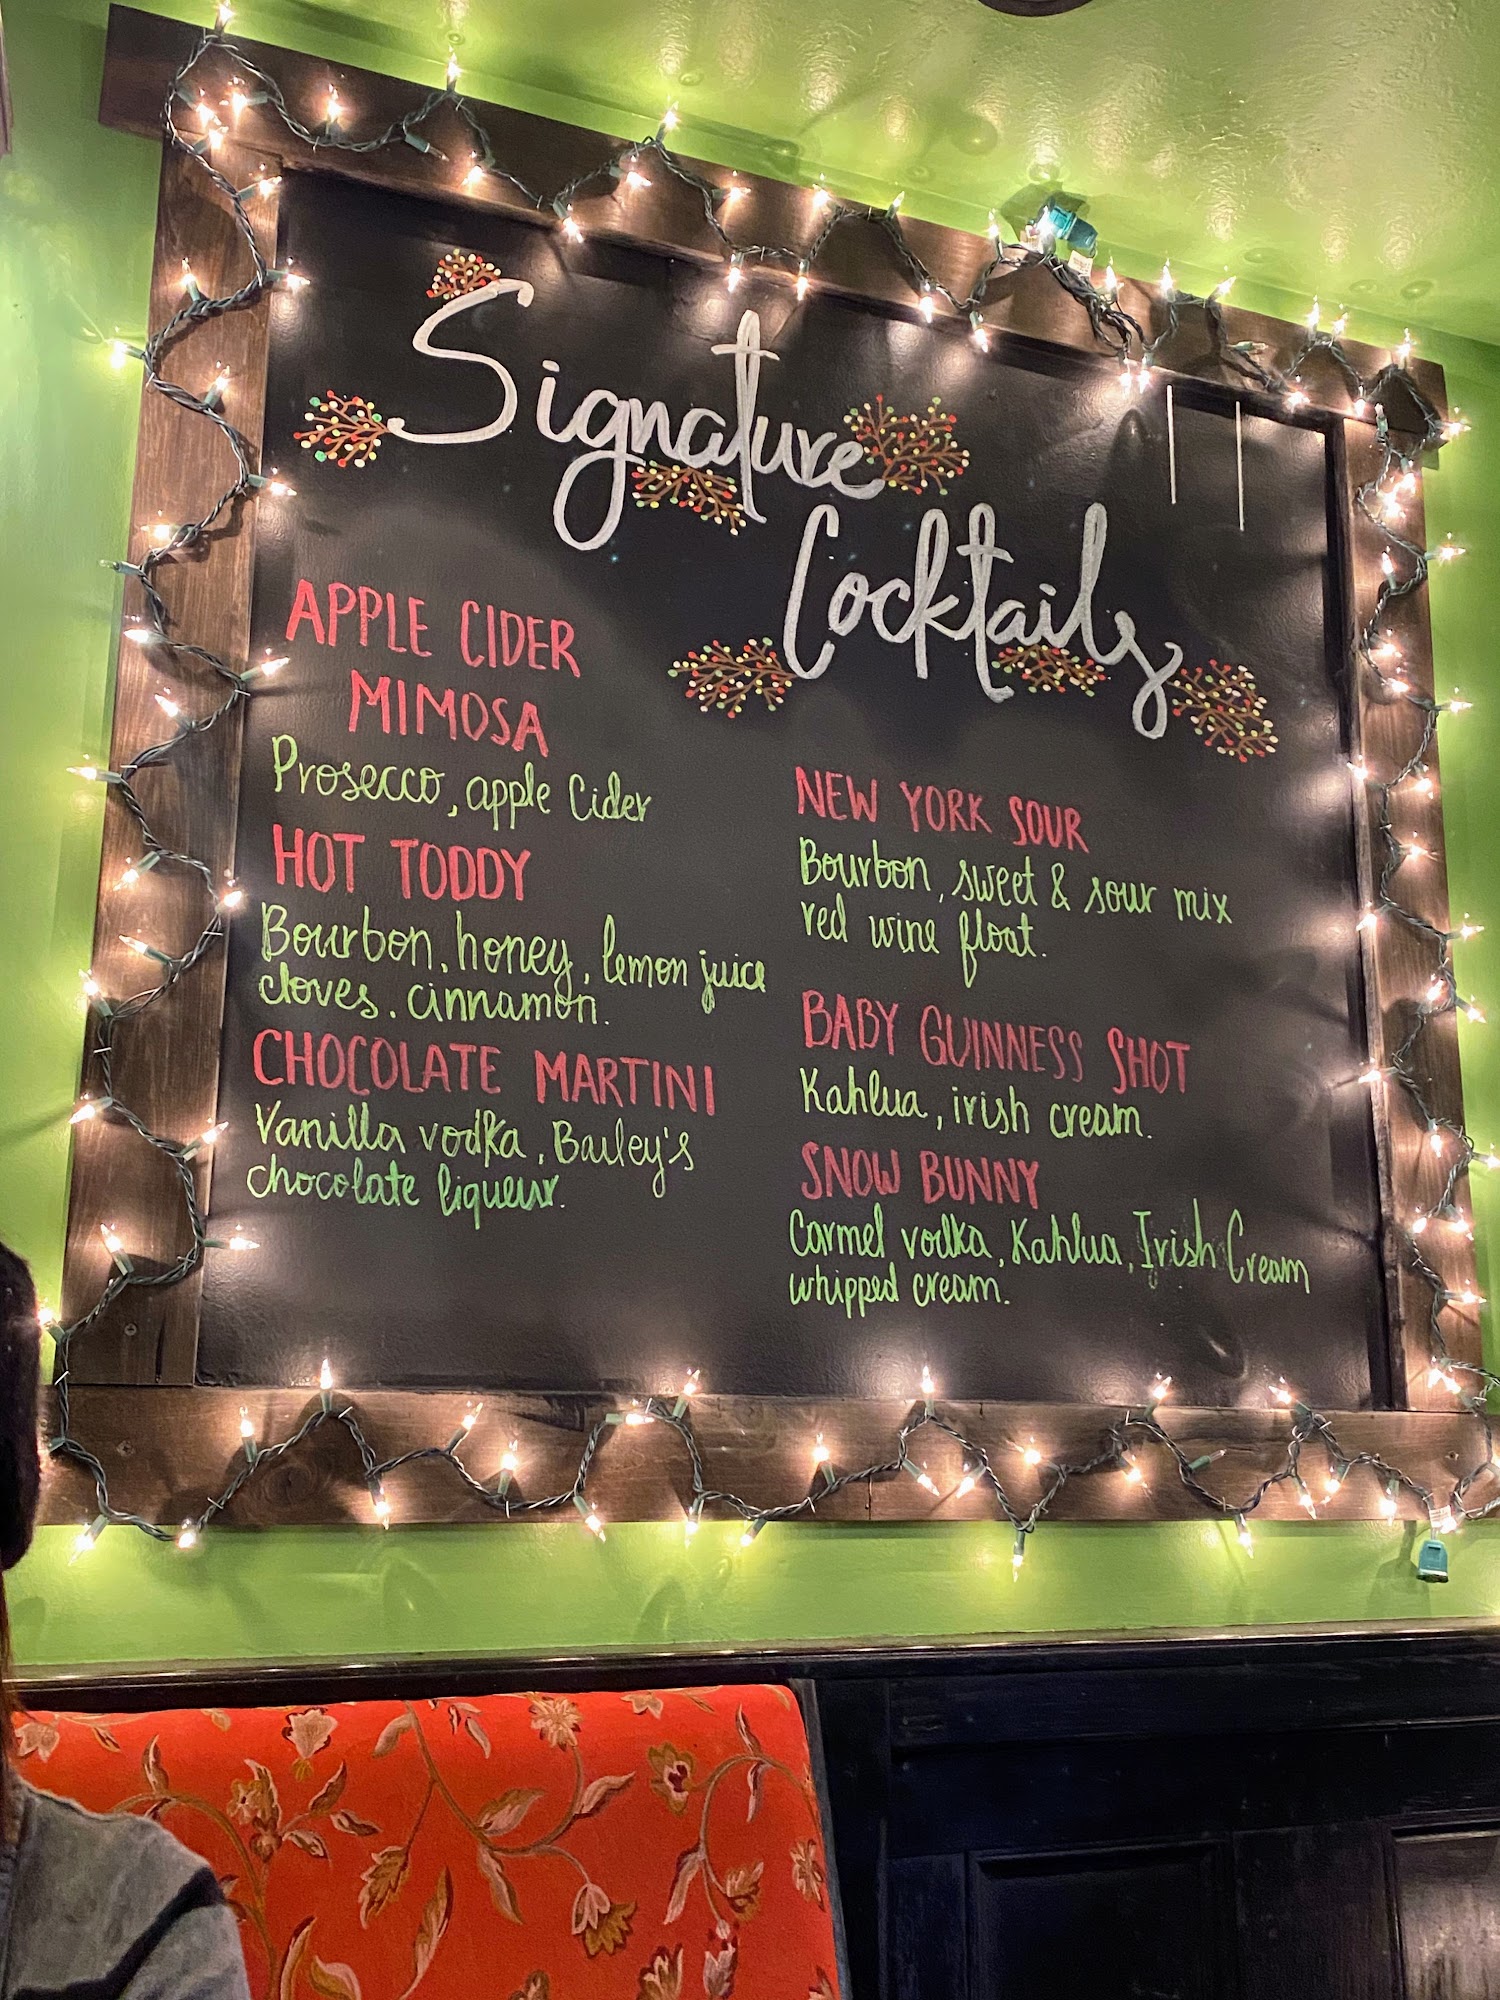 Signature
Cocktails
APPLE CIDER
MIMOSA
Prosecco, apple Cider
HOT TODDY
Bourbon, honey, lemon juice
cloves. cinnamon.
CHOCOLATE MARTINI
Vanilla vodka, Bailey's
chocolate liqueur.
NEW YORK SOUR
Bourbon, sweet & sour mix
red wine float.
BABY GUINNESS SHOT
Kahlua, irish cream.
SNOW BUNNY
Carmel vodka, Kahlua, Irish Cream
whipped cream.